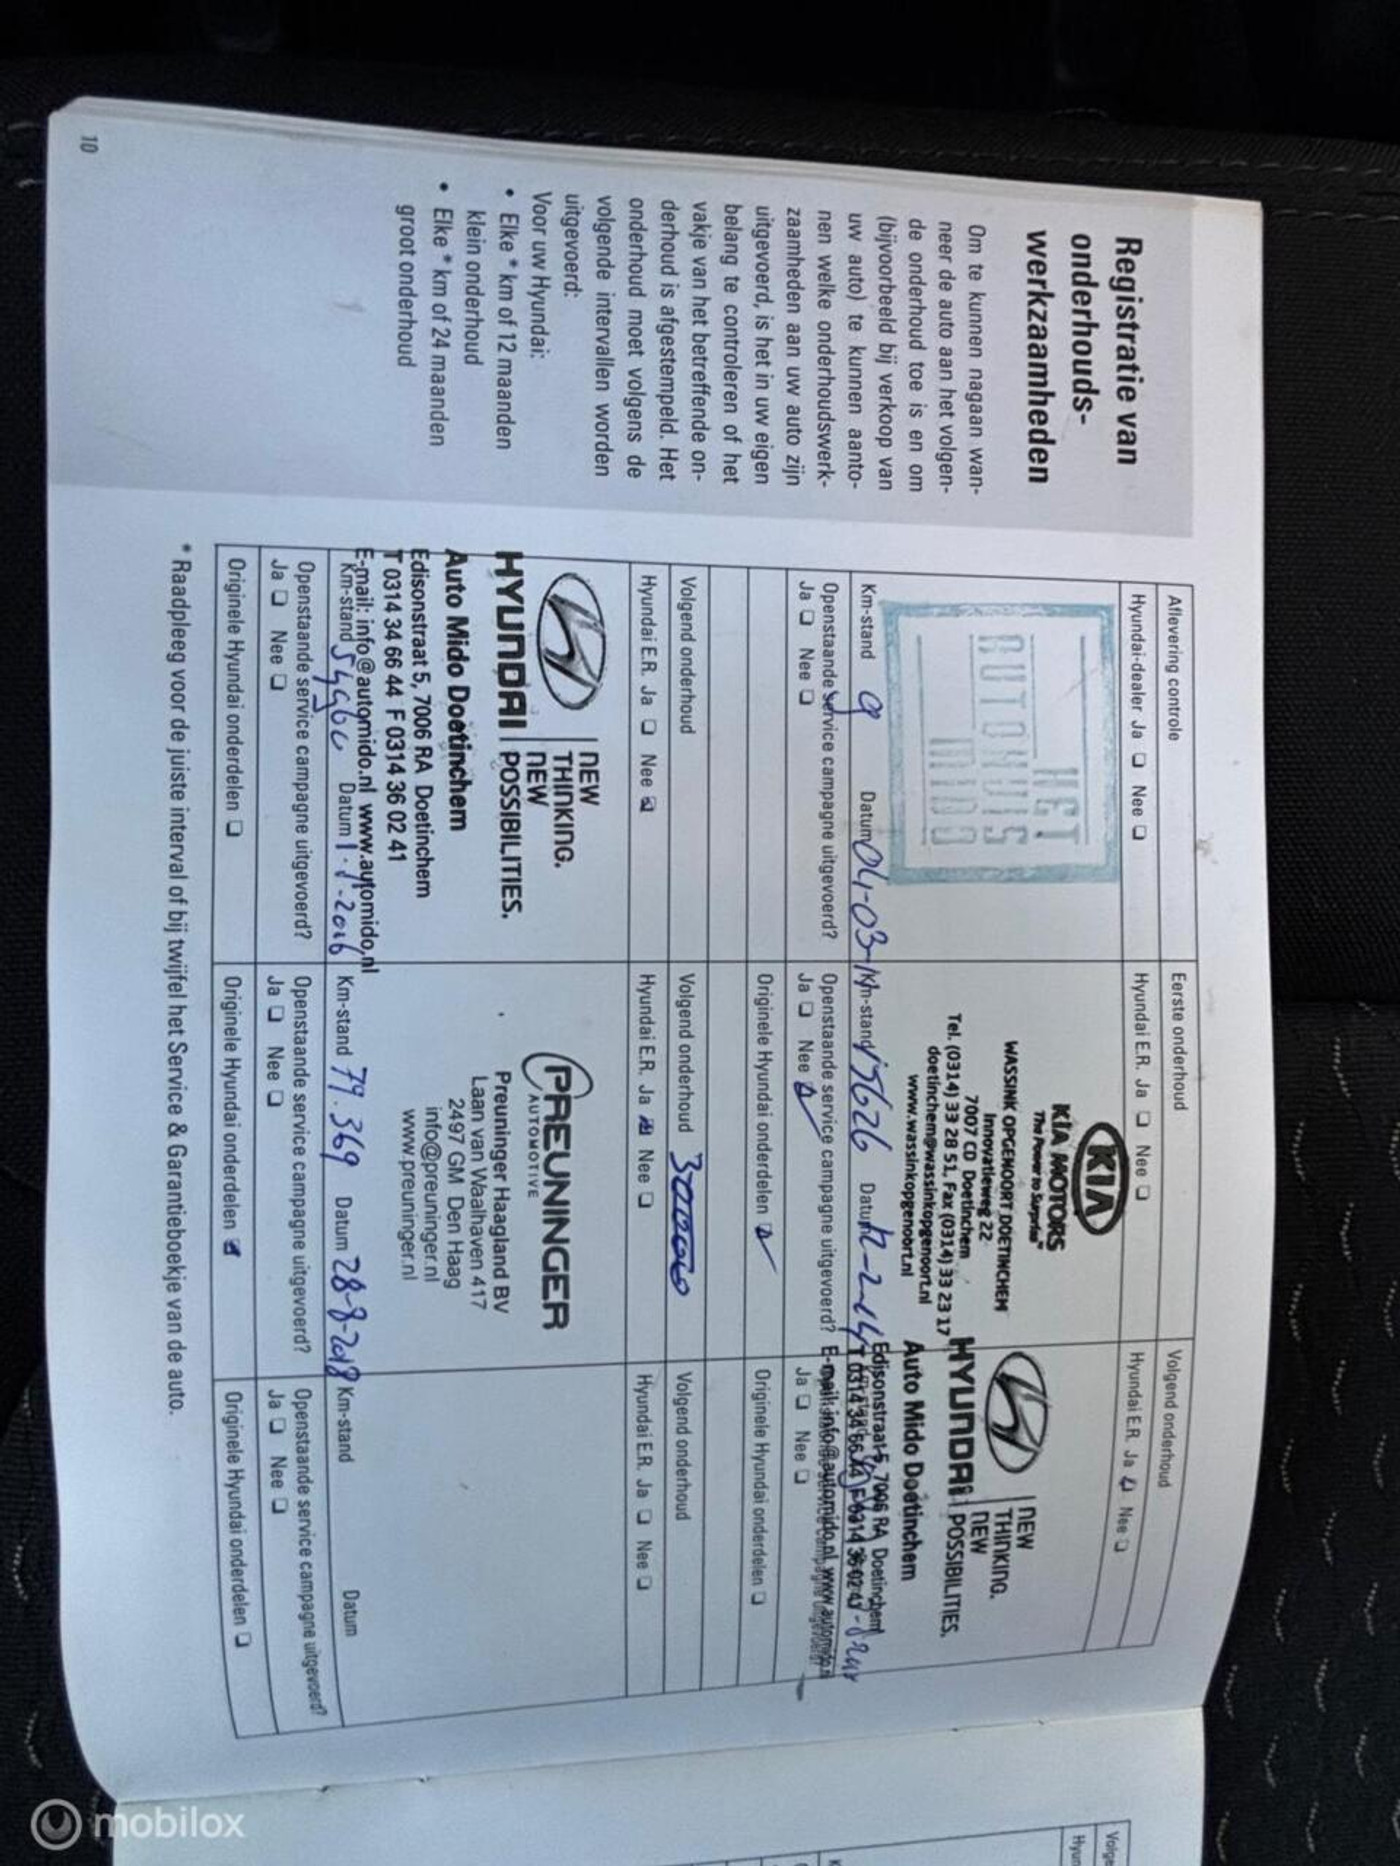 Registratie van
onderhouds-
werkzaamheden
Om te kunnen nagaan wan-
neer de auto aan het volgen-
de onderhoud toe is en om
(bijvoorbeeld bij verkoop van
uw auto) te kunnen aanto-
nen welke onderhoudswerk-
zaamheden aan uw auto zijn
uitgevoerd, is het in uw eigen
belang te controleren of het
vakje van het betreffende on-
derhoud is afgestempeld. Het
onderhoud moet volgens de
volgende intervallen worden
uitgevoerd:
Voor uw Hyundai:
• Elke * km of 12 maanden
klein onderhoud
• Elke * km of 24 maanden
groot onderhoud
10
Aflevering controle
Hyundai-dealer Ja ❑ Nee ❑
HET
AUTOHUIS
MIDO
Km-stand 9 Datum 04-03-
Openstaande service campagne uitgevoerd?
Ja ❑ Nee ❑
Eerste onderhoud
Hyundai E.R. Ja ❑ Nee ❑
KIA
KIA MOTORS
The Power to Surprise™
WASSINK OPGENOORT DOETINCHEM
Innovatieweg 22
7007 CD Doetinchem
Tel. (0314) 33 28 51, Fax (0314) 33 23 17
doetinchem@wassinkopgenoort.nl
www.wassinkopgenoort.nl
Km-stand 17626 Datum 12-2-14
Openstaande service campagne uitgevoerd?
Ja ❑ Nee ☑
Originele Hyundai onderdelen ☑
Volgend onderhoud
Hyundai E.R. Ja ☑ Nee ❑
HYUNDAI
NEW
THINKING.
NEW
POSSIBILITIES.
Auto Mido Doetinchem
Edisonstraat 5, 7006 RA Doetinchem
T 0314 34 66 44 F 0314 36 02 41
E-mail: info@automido.nl www.automido.nl
Ja ❑ Nee ❑
Originele Hyundai onderdelen ❑
Volgend onderhoud
Hyundai E.R. Ja ❑ Nee ☑
HYUNDAI
NEW
THINKING.
NEW
POSSIBILITIES.
Auto Mido Doetinchem
Edisonstraat 5, 7006 RA Doetinchem
T 0314 34 66 44 F 0314 36 02 41
E-mail: info@automido.nl www.automido.nl
Km-stand Datum
Openstaande service campagne uitgevoerd?
Ja ❑ Nee ❑
Originele Hyundai onderdelen ❑
Volgend onderhoud 300000
Hyundai E.R. Ja ☑ Nee ❑
PREUNINGER
AUTOMOTIVE
Preuninger Haagland BV
Laan van Waalhaven 417
2497 GM Den Haag
info@preuninger.nl
www.preuninger.nl
Km-stand 79.369 Datum 28-8-2018
Openstaande service campagne uitgevoerd?
Ja ❑ Nee ❑
Originele Hyundai onderdelen ☑
Volgend onderhoud
Hyundai E.R. Ja ❑ Nee ❑
Km-stand Datum
Openstaande service campagne uitgevoerd?
Ja ❑ Nee ❑
Originele Hyundai onderdelen ❑
* Raadpleeg voor de juiste interval of bij twijfel het Service & Garantieboekje van de auto.
mobilox